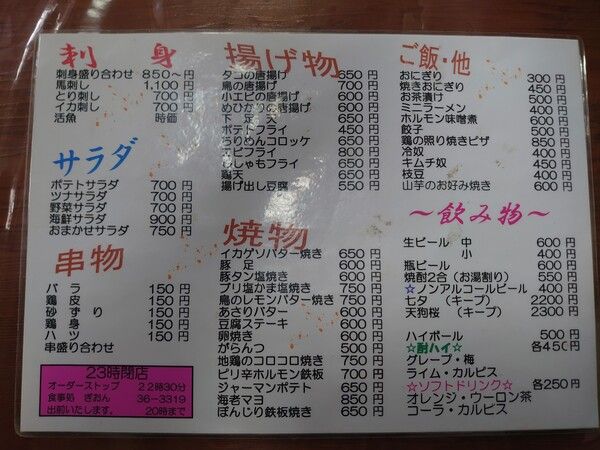 刺身
刺身盛り合わせ 850～円
馬刺し 1,100円
とり刺し 700円
イカ刺し 700円
活魚 時価
サラダ
ポテトサラダ 700円
ツナサラダ 700円
野菜サラダ 700円
海鮮サラダ 900円
おまかせサラダ 750円
串物
バラ 150円
鶏皮 150円
砂ずり 150円
鶏身 150円
ハツ 150円
串盛り合わせ
23時閉店
オーダーストップ 22時30分
食事処 ぎおん 36-3319
出前いたします。 20時まで
揚げ物
タコの唐揚げ 650円
鳥の唐揚げ 700円
小エビの唐揚げ 650円
めひかりの唐揚げ 650円
下足 650円
ポテトフライ 450円
ちりめんコロッケ 650円
エビフライ 800円
ししゃもフライ 650円
鶏天 650円
揚げ出し豆腐 550円
焼物
イカゲソバター焼き 650円
豚足 600円
豚タン塩焼き 600円
ブリ塩かま塩焼き 750円
鳥のレモンバター焼き 750円
あさりバター 600円
豆腐ステーキ 600円
卵焼き 600円
がらんつ 500円
地鶏のコロコロ焼き 750円
ピリ辛ホルモン鉄板 700円
ジャーマンポテト 650円
海老マヨ 850円
ぼんじり鉄板焼き 650円
ご飯・他
おにぎり 300円
焼きおにぎり 450円
お茶漬け 500円
ミニラーメン 400円
ホルモン味噌煮 600円
餃子 500円
鶏の照り焼きピザ 850円
冷奴 400円
キムチ奴 500円
枝豆 400円
山芋のお好み焼き 600円
～飲み物～
生ビール 中 600円
小 400円
瓶ビール 600円
焼酎2合（お湯割り） 550円
☆ノンアルコールビール 400円
七夕（キープ） 2200円
天狗桜（キープ） 2300円
ハイボール 500円
☆酎ハイ☆ 各450円
グレープ・梅
ライム・カルピス
☆ソフトドリンク☆ 各250円
オレンジ・ウーロン茶
コーラ・カルピス